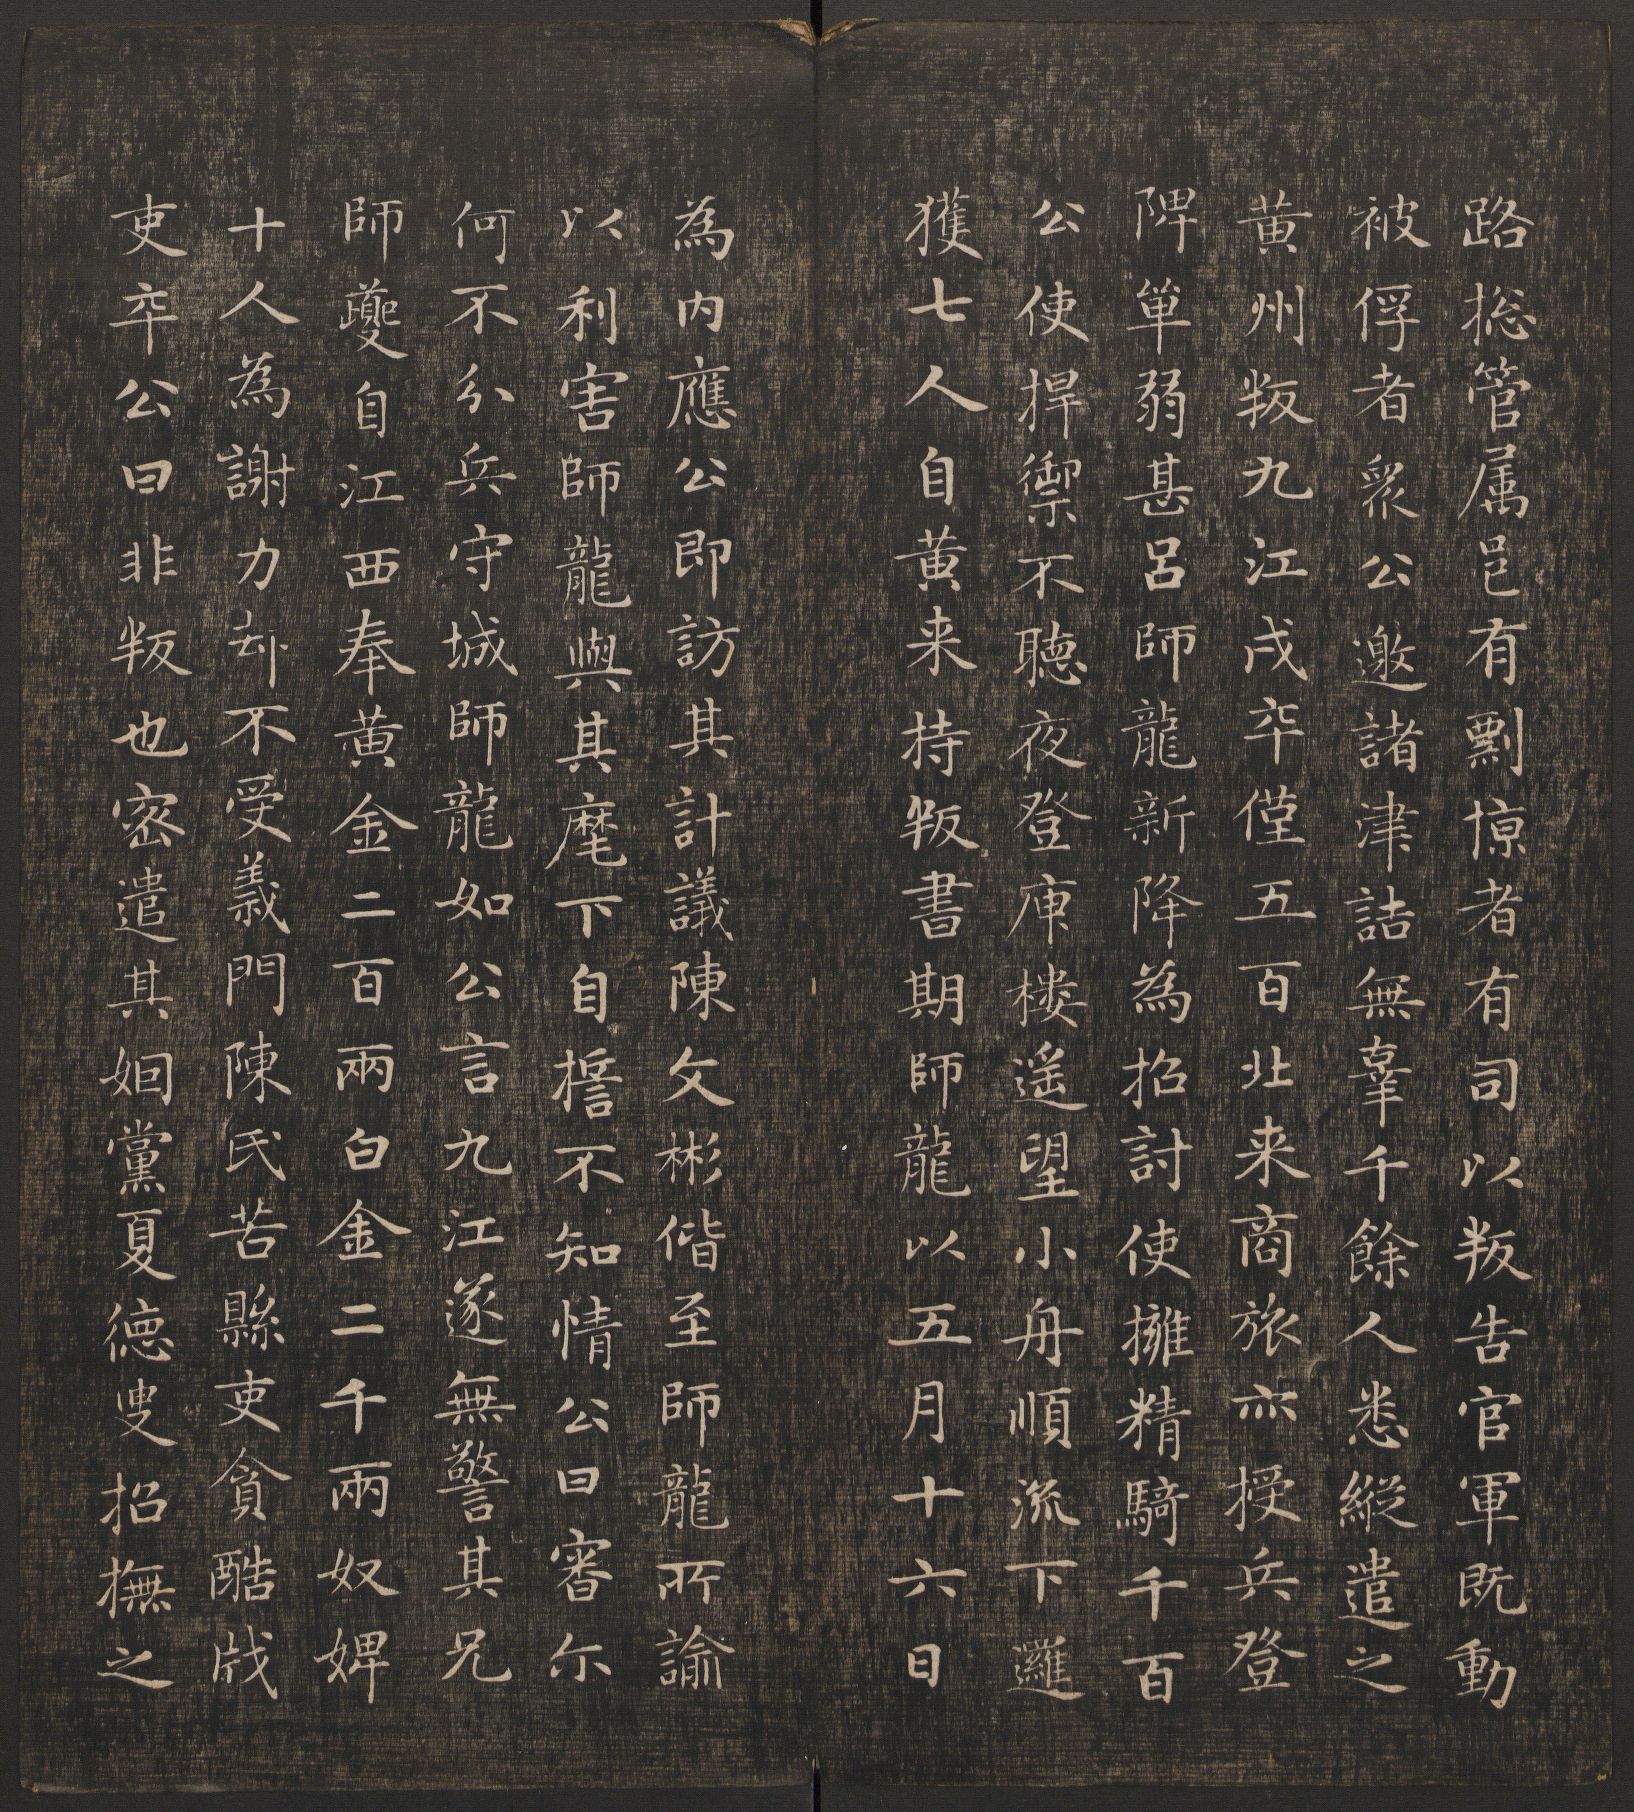 路捴管属邑有剽掠者有司以叛告官軍既動
被俘者衆公邀諸津詰無辜千餘人悉縦遣之
黄州叛九江戍卒僅五百北来商旅亦授兵登
陴單弱甚吕師龍新降為招討使擁精騎千百
公使捍禦不聴夜登庾楼遥望小舟順流下邏
獲七人自黄来持叛書期師龍以五月十六日
為内應公即訪其計議陳文彬偕至師龍所諭
以利害師龍與其麾下自擔不知情公曰審尒
何不分兵守城師龍如公言九江遂無警其兄
師夔自江西奉黄金二百兩白金二千兩奴婢
十人為謝力却不受義門陳民苦縣吏貪酷戕
吏卒公曰非叛也密遣其姻黨夏徳叟招撫之